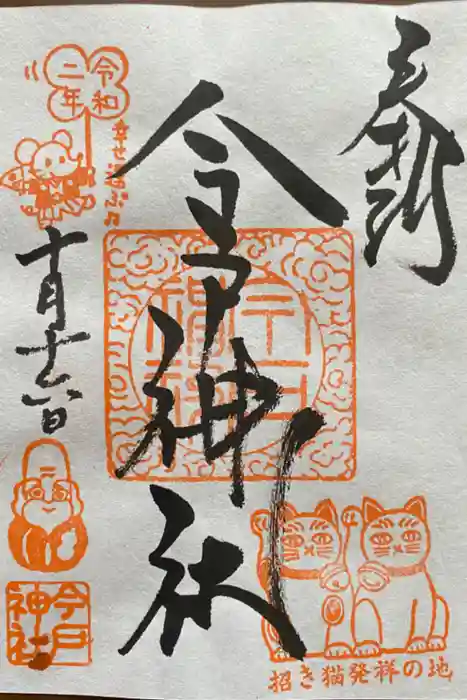 奉拝
今戸神社
令和
二年
幸せ招ぶ
十月十六日
今戸
神社
招き猫発祥の地